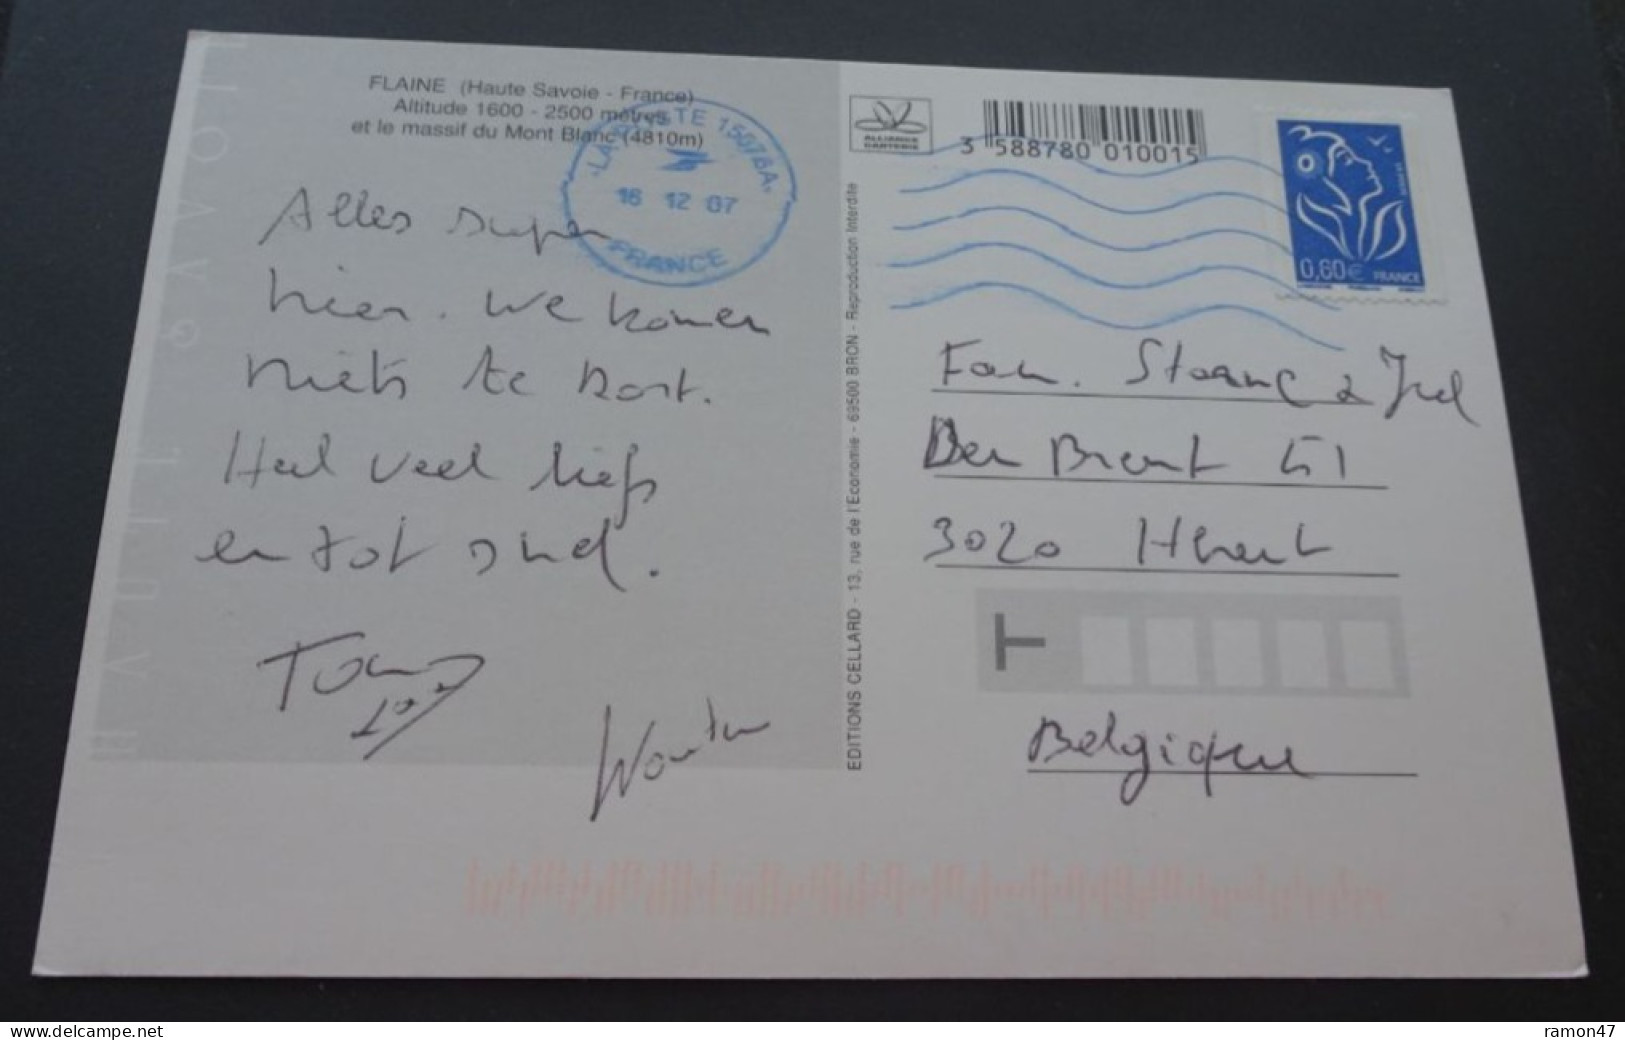 FLAINE (Haute Savoie - France)
Altitude 1600 - 2500 mètres
et le massif du Mont Blanc (4810m)
LA POSTE 15078A
16 12 07
FRANCE
Alles super
hier. We komen
niets te kort.
Heel veel liefs
en tot sud.
Wouter
HAUTE SAVOIE
EDITIONS CELLARD - 13, rue de l'Economie - 69500 BRON - Reproduction Interdite
ALLIANCE
CARTERIE
3 588780 010015
0,60€ FRANCE
Fam.
Den Brant 51
3020 Herent
T
Belgique
www.delcampe.net
ramon47